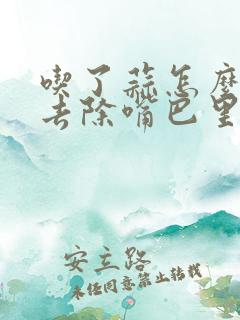 喫了蒜怎麼
去除嘴巴里
安立路
未经同意禁止转载